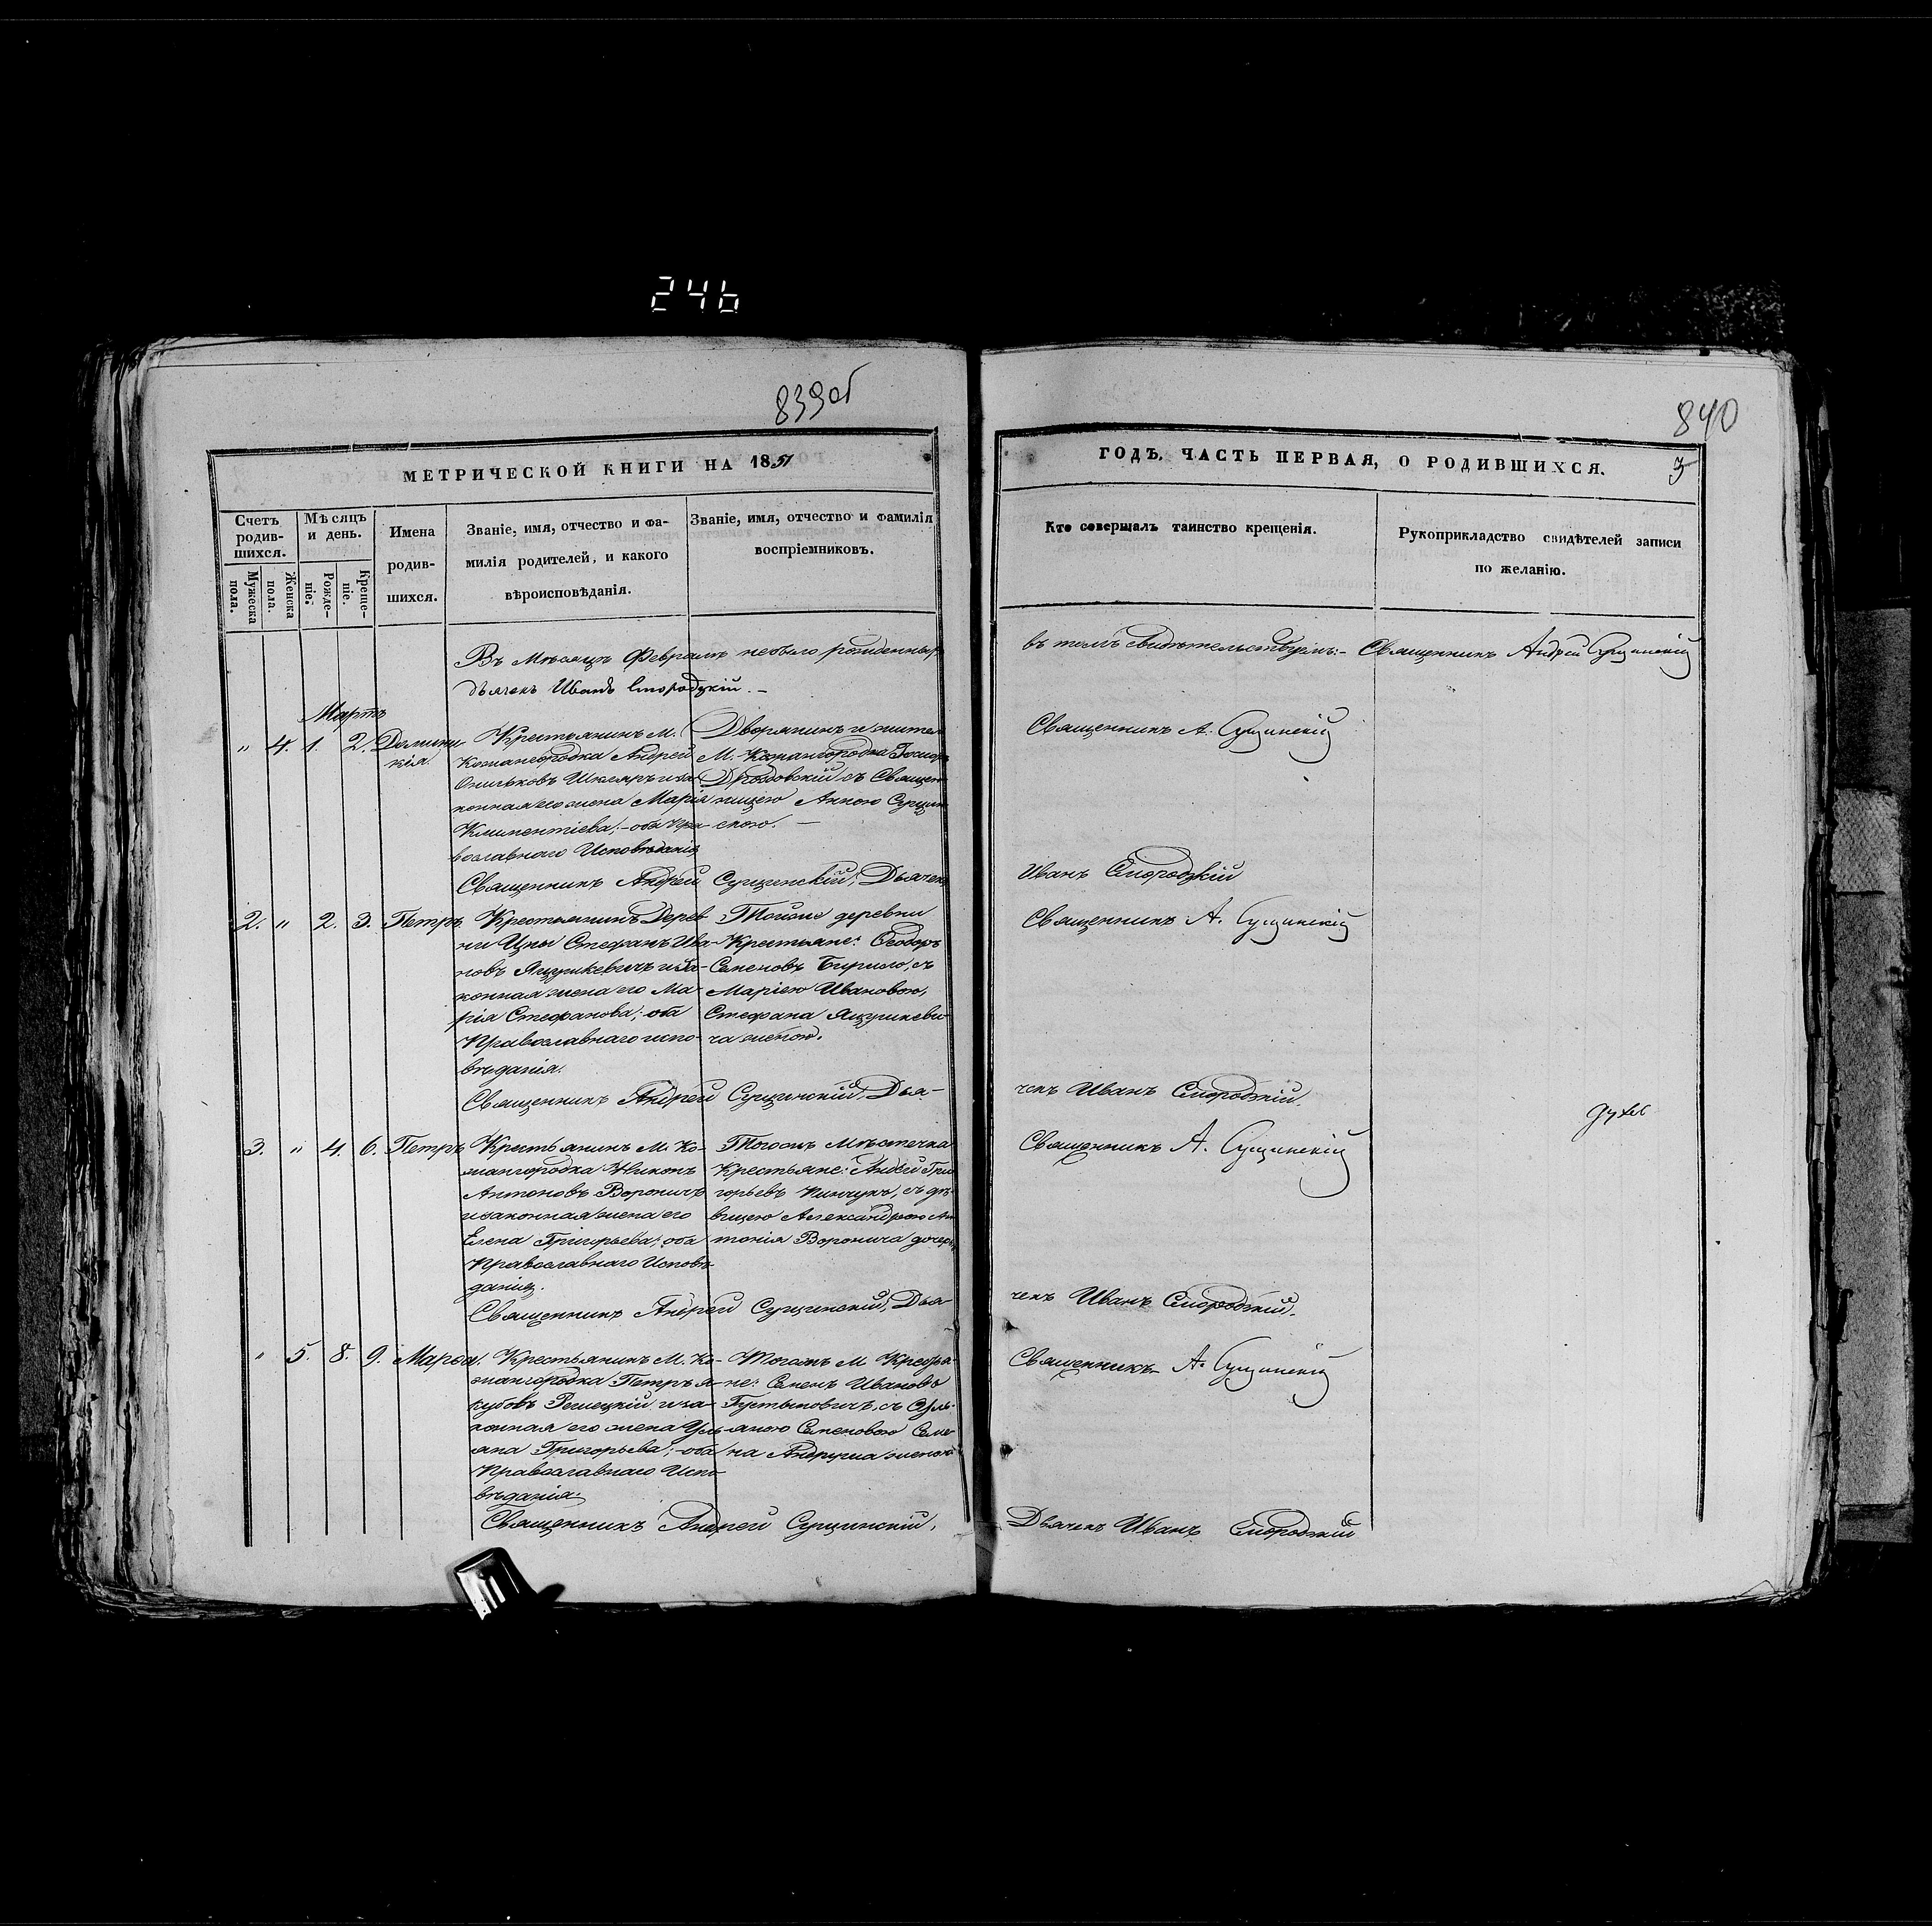 246
839об
840
МЕТРИЧЕСКОЙ КНИГИ НА 1851
ГОДЪ, ЧАСТЬ ПЕРВАЯ, О РОДИВШИХСЯ.
3
Счетъ родив-шихся.
Мужеска пола.
Женска пола.
Мѣсяцъ и день.
Рожде-ніе.
Креще-ніе.
Имена родив-шихся.
Званіе, имя, отчество и фа-
милія родителей, и какого
вѣроисповѣданія.
Званіе, имя, отчество и фамилія
воспріемниковъ.
Кто совершалъ таинство крещенія.
Рукоприкладство свидѣтелей записи
по желанію.
Въ Мѣсяцѣ Февралѣ небыло рожденныхъ
въ томъ свидѣтельствуемъ:- Священникъ Андрей Сущинскій
дьячекъ Иванъ Смородскій. –
Мартъ
" 4. 1. 2. Домини
кія.
Крестьянинъ М.
Кожангородка Андрей
и за
конная его жена Марія
Климентіева; – оба Пра
вославнаго Исповѣданія
Дворянинъ и жител
М. Кожангородка
съ Священ
ницею Анною Сущин
скою. –
Священникъ А. Сущинскій
Священникъ Андрей Сущинскій; Дьячекъ
Иванъ Смородскій
2. " 2. 3. Петръ
Крестьянинъ Дерев
ни Цны Стефанъ Ива-
новъ Ящукевичъ и за-
конная жена его Ма-
рія Стефанова; оба
Православнаго испо-
вѣданія.
Тойже деревни
Крестьяне: Ѳеодоръ
Семеновъ Бирило, съ
Маріею Ивановою,
Стефана Ящукеви
ча женою.
Священникъ А. Сущинскій
Священникъ Андрей Сущинскій, Дья-
чекъ Иванъ Смородскій.
3. " 4. 6. Петръ
Крестьянинъ М. Ко-
жангородка Никонъ
Антоновъ Вороничъ
и законная жена его
Елена Григорьева; оба
Православнаго Исповѣ
данія.
Тогожъ Мѣстечка
Крестьяне: Андрей Гри
горьевъ Пинчукъ, съ дѣ-
вицею Александрою Ан
тонія Воронича дочерью
Священникъ А. Сущинскій
Священникъ Андрей Сущинскій, Дья-
чекъ Иванъ Смородскій.
" 5. 8. 9. Марѳа.
Крестьянинъ М. Ко-
жангородка Петръ Я-
кубовъ Решецкій и за-
конная его жена Уль
яна Григорьева; – оба
Православнаго Испо
вѣданія.
Тогожъ М Крестья-
не: Семенъ Ивановъ
Густыновичъ, съ Уль-
яною Семеновою Семе
на женою
Священникъ А. Сущинскій
Священникъ Андрей Сущинскій,
Дьячекъ Иванъ Смородскій